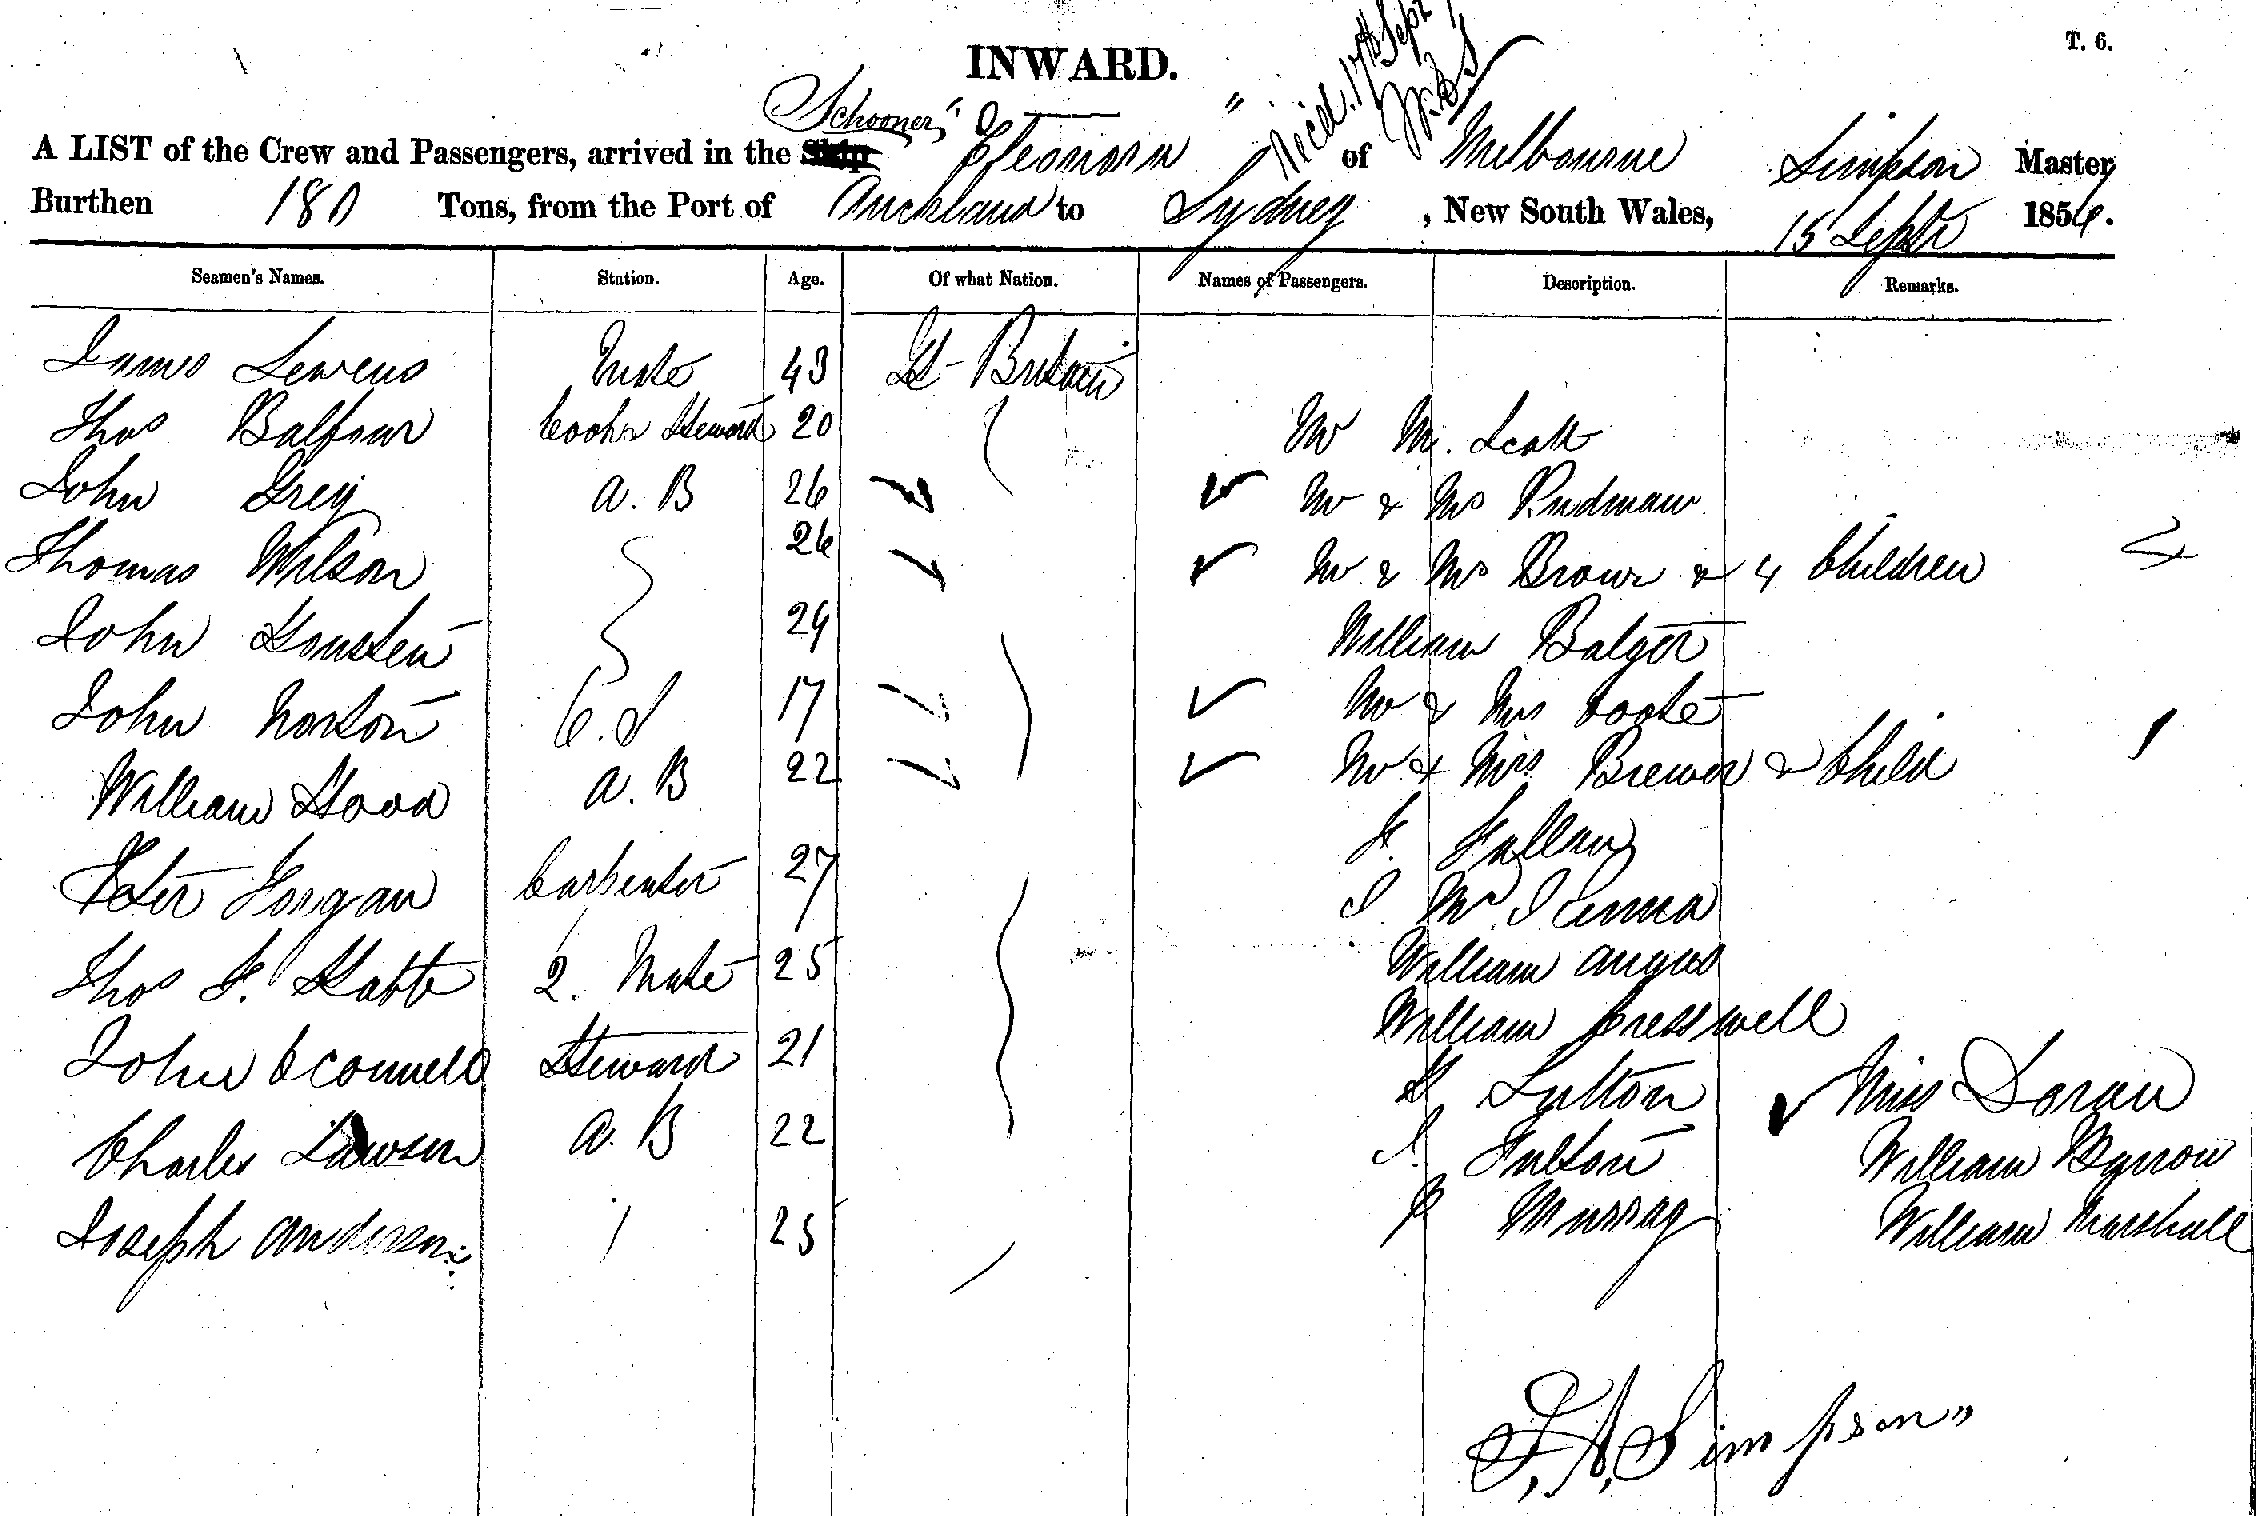 T. 6.
INWARD.
Recd. 17th Sept
Schooner
A LIST of the Crew and Passengers, arrived in the Ship "Eleonora" of Melbourne Simpson Master,
Burthen 180 Tons, from the Port of Auckland to Sydney, New South Wales, 15 Septr 1856.
Seamen's Names. Station. Age. Of what Nation. Names of Passengers. Description. Remarks.
James Lewens Mate 43 Gt Britain
Thos Balfour Cook & Steward 20 Mr M. Scott
John Grey A. B 26 Mr & Mrs Rudman
Thomas Wilson 26 Mr & Mrs Brown & 4 Children 4
John Housten 29 William Balger
John Norton O.S 17 Mr & Mrs Cooke
William Hood A. B 22 Mr & Mrs Brewer & Child 1
F. Fallan
Peter Gorgan Carpenter 27 J Mc Kenna
William Angus
Thos F. Stabb 2. Mate 25
William Cresswell
John OConnell Steward 21 H Lutton Miss Doran
Charles Lawson A. B 22 Fulton William Byrron
Joseph Anderson 25 P Murray William Marshall
F. A. Simpson